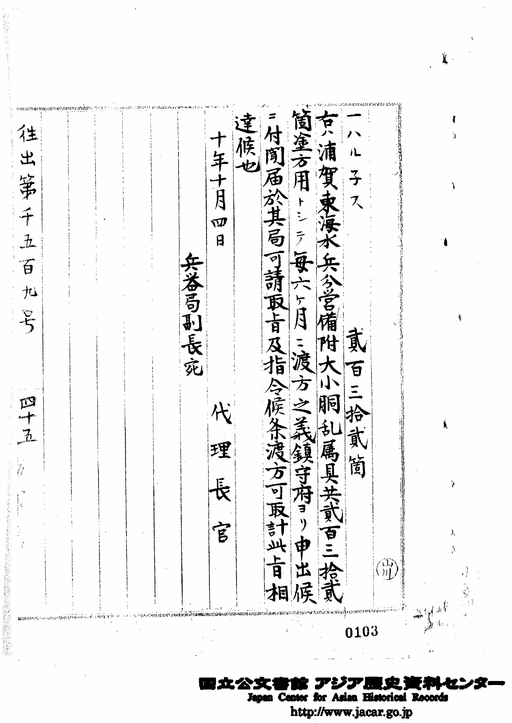 一ハル子ス 貳百三拾貳箇
右ハ浦賀東海水兵分営備附大小胴乱属具共貳百三拾貳
箇塗方用トシテ毎六ケ月ニ渡方之義鎮守府ヨリ申出候
ニ付聞届於其局可請取旨及指令候条渡方可取計此旨相
達候也
十年十月四日 代理長官
兵器局副長宛
往出第千五百九号 四十五
0103
国立公文書館 アジア歴史資料センター
Japan Center for Asian Historical Records
http://www.jacar.go.jp